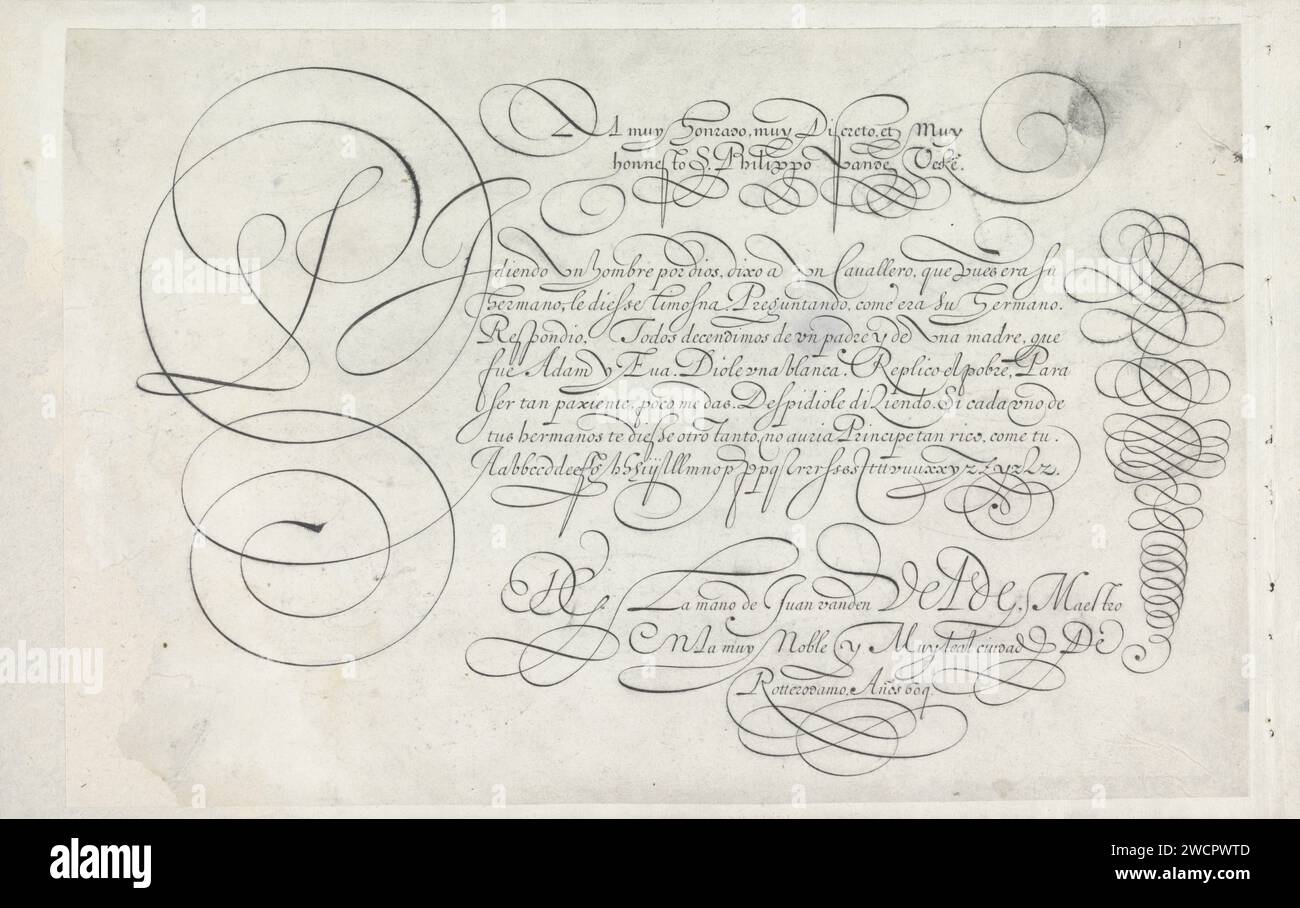 Al muy Honrado, muy Discreto, et Muy
honnesto S. Philippo Vande
Pidiendo Un hombre por dios, dixo a Un Cavallero, que pues era su
hermano, le diesse limosna. Preguntando, come era su Hermano.
Respondio, Todos decendimos de vn padre y de Una madre, que
fue Adam y Eua. Diole vna blanca. Replico el pobre, Para
ser tan paxiente, poco me das. Despidiole diziendo. Si cada vno de
tus hermanos te diesse otro tanto, no auria Principe tan rico, come tu.
De La mano de Juan vanden Velde, Maestro
En la muy Noble y Muy leal ciudad De
Rotterodamo. Años 609.
alamy
Image ID: 2WCPWTD
www.alamy.com